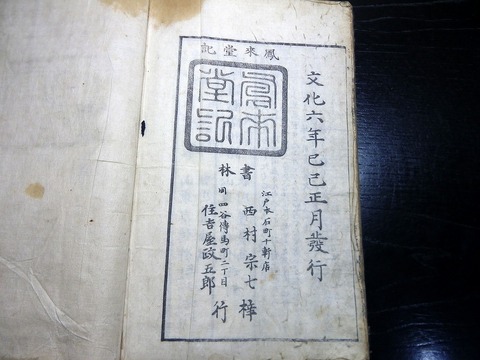 文化六年己巳正月發行
鳳來堂記
鳳來
堂記
書林
江戸本石町十軒店
西村宗七梓
同四谷傳馬町二丁目
住吉屋政五郎行